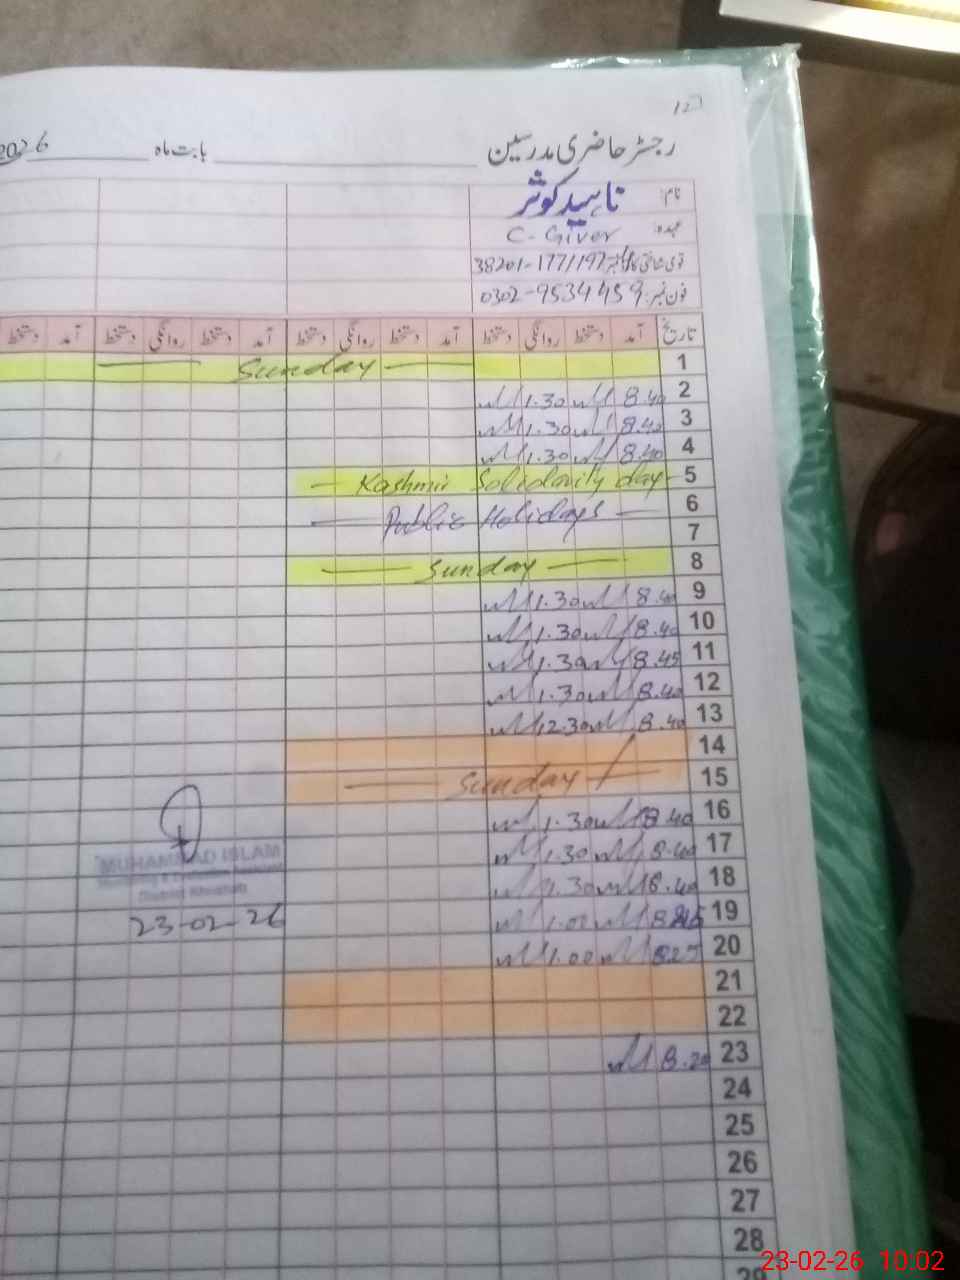 127
رجسٹر حاضری مدرسین بابت ماہ 2026
نام: ناہید کوثر
عہدہ: C-Giver
قومی شناختی کارڈ نمبر 38201-177/197
فون نمبر: 0302-9534459
تاریخ آمد دستخط روانگی دستخط آمد دستخط روانگی دستخط آمد دستخط روانگی دستخط آمد دستخط
1 — Sunday —
2 8.40 1.30
3 8.40 1.30
4 8.40 1.30
5 — Kashmir Solidarity day —
6 — Public Holidays —
7
8 — Sunday —
9 8.40 1.30
10 8.40 1.30
11 8.45 1.30
12 8.40 1.30
13 8.40 12.30
14
15 — Sunday —
16 8.40 1.30
17 8.40 1.30
18 8.40 1.30
19 1.00
20 8.25 1.00
21
22
23 8.20
24
25
26
27
28
29
MUHAMMAD ISLAM
Monitoring & Evaluation Assistant
District Khushab
23-02-26
23-02-26 10:02